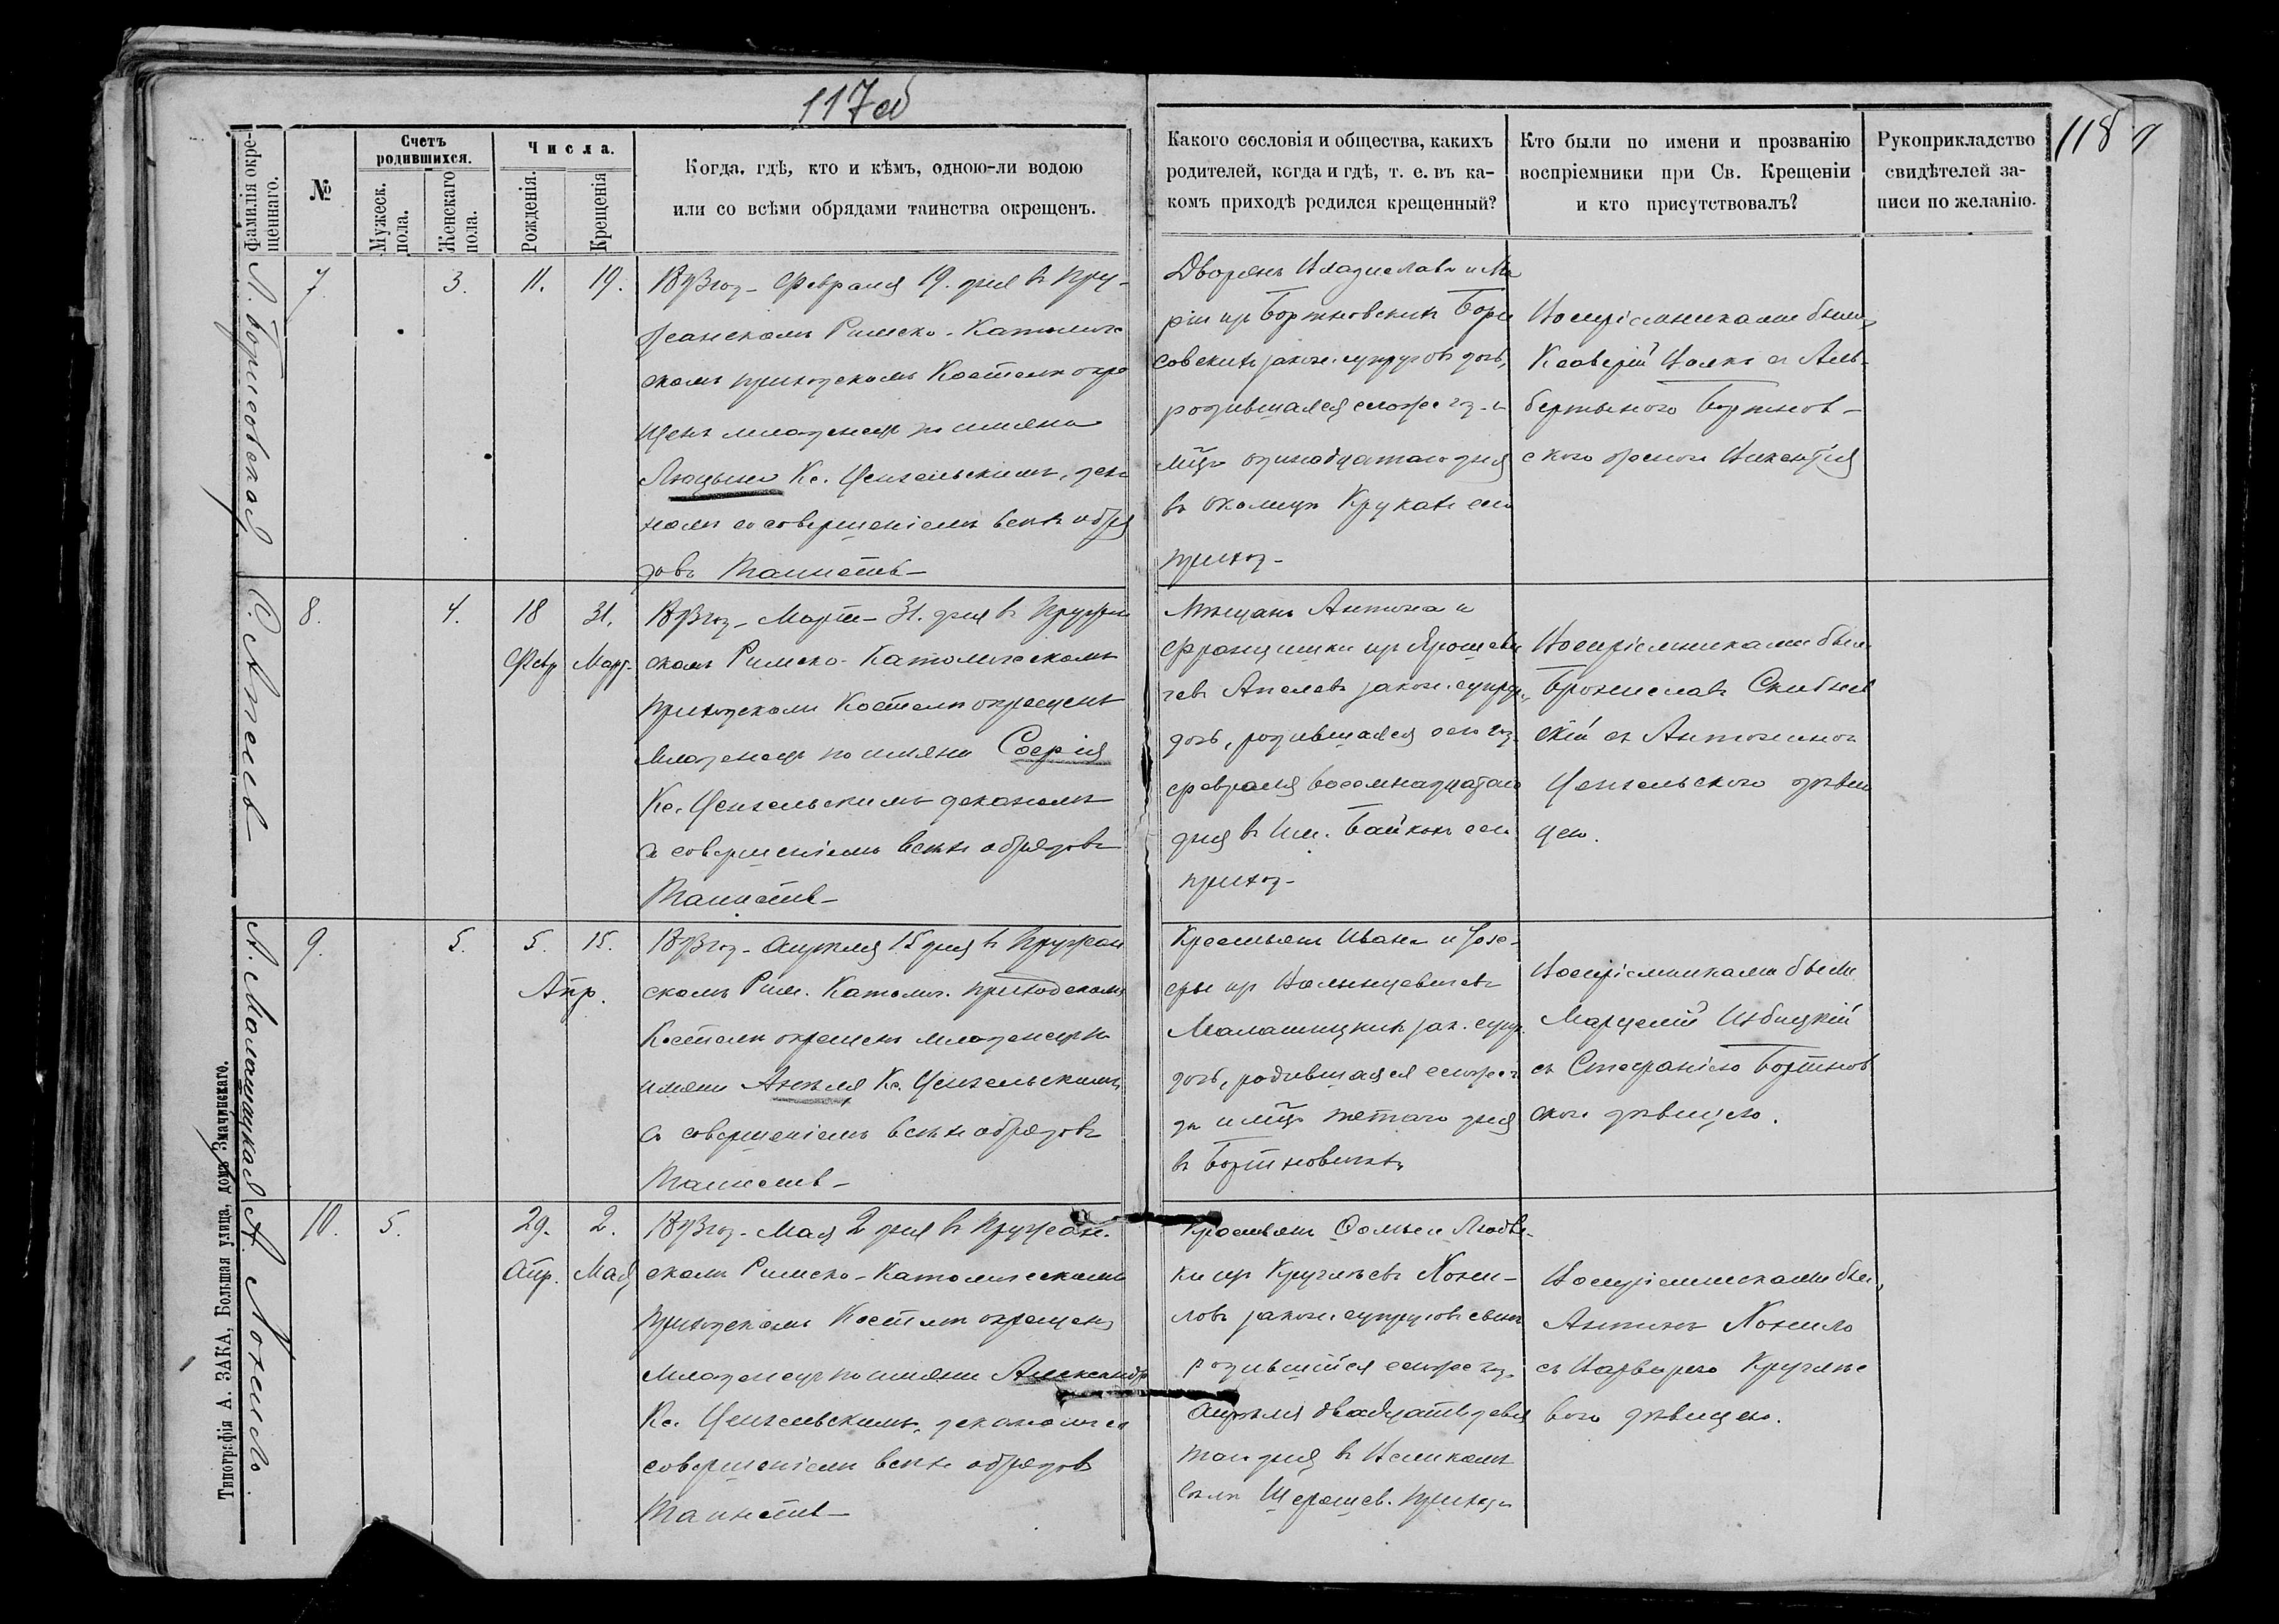 117об
118
Фамилія окре-
щеннаго.
№
Счетъ
родившихся.
Мужеск.
пола.
Женскаго
пола.
Числа.
Рожденія.
Крещенія
Когда, гдѣ, кто и кѣмъ, одною-ли водою
или со всѣми обрядами таинства окрещенъ.
Какого сословія и общества, какихъ
родителей, когда и гдѣ, т. е. въ ка-
комъ приходѣ родился крещенный?
Кто были по имени и прозванію
воспріемники при Св. Крещеніи
и кто присутствовалъ?
Рукоприкладство
свидѣтелей за-
писи по желанію.
Л. Борисовская
7.
3.
11.
19.
Февраля 19. дня въ Пру-
жанскомъ Римско-Католиче
скомъ приходскомъ Костелѣ окре
щенъ младенецъ по имяни
Люцына Кс. Ценгельскимъ, дека
номъ со совершеніемъ всѣхъ обря
довъ Таинств-
Дворянъ Владислава и Ма
ріи изъ Бортновскихъ Бори
совскихъ закон. супруговъ дочь,
родившаяся сего же г. и
мца одинадцатого дня
въ околицѣ Круката сего
приход-
Воспріемниками были
Ксаверій Волкъ съ Аль-
бертыною Бортнов-
С. Апелев
8.
4.
18
Февр
31.
Март.
Март- 31. дня въ Пружан
скомъ Римско-Католическомъ
приходскомъ Костелѣ окрещенъ
младенецъ по имяни Софія
Кс. Ценгельскимъ деканомъ
со совершеніемъ всѣхъ обрядовъ
Таинств-
Мѣщанъ Антона и
Францишки изъ Ярошеви
чевъ закон. супруг.
дочь, родившаяся сего год.
февраля восемнадцатаго
дня въ Им. Байкахъ сего
приход-
Воспріемниками были
Брониславъ
скій съ Антониною
Ценгельского дѣви
цею.
А. Малашицкая
9.
5.
5.
15.
Апр.
Апрѣля 15 дня въ Пружан
скомъ Рим. Католич. приходскомъ
Костелѣ окрещенъ младенецъ по
имяни Анеля Кс. Ценгельскимъ
со совершеніемъ всѣхъ обрядовъ
Таинств-
Крестьянъ Ивана и Юзе-
фы изъ Волынцевичевъ
Малашицкихъ зак. супр.
дочь, родившаяся сего же го
да и мца пятаго дня
въ Бортновичахъ
Воспріемниками были
Марцелій Избицкій
съ Стефаніею Бортнов
ского дѣвицею.
А. Хонило.
10.
5.
29.
Апр.
2.
Мая
Мая 2 дня въ Пружан.
скомъ Римско-Католическомъ
приходскомъ Костелѣ окрещенъ
младенецъ по имяни Александр
Кс. Ценгельскимъ, деканомъ со
совершеніемъ всѣхъ обрядовъ
Таинств-
Крестьянъ Фомы и Людви-
ки изъ Хони-
ловъ закон. супруговъ сынъ
родившійся сего же год.
Апрѣля двадцать девя
таго дня въ Великомъ
Селѣ Шерешев. прихода
Воспріемниками были
Антонъ Хонило
съ Варварою
дѣвицею.
Типографія А. ЗАКА, Большая улица, домъ Значинскаго.